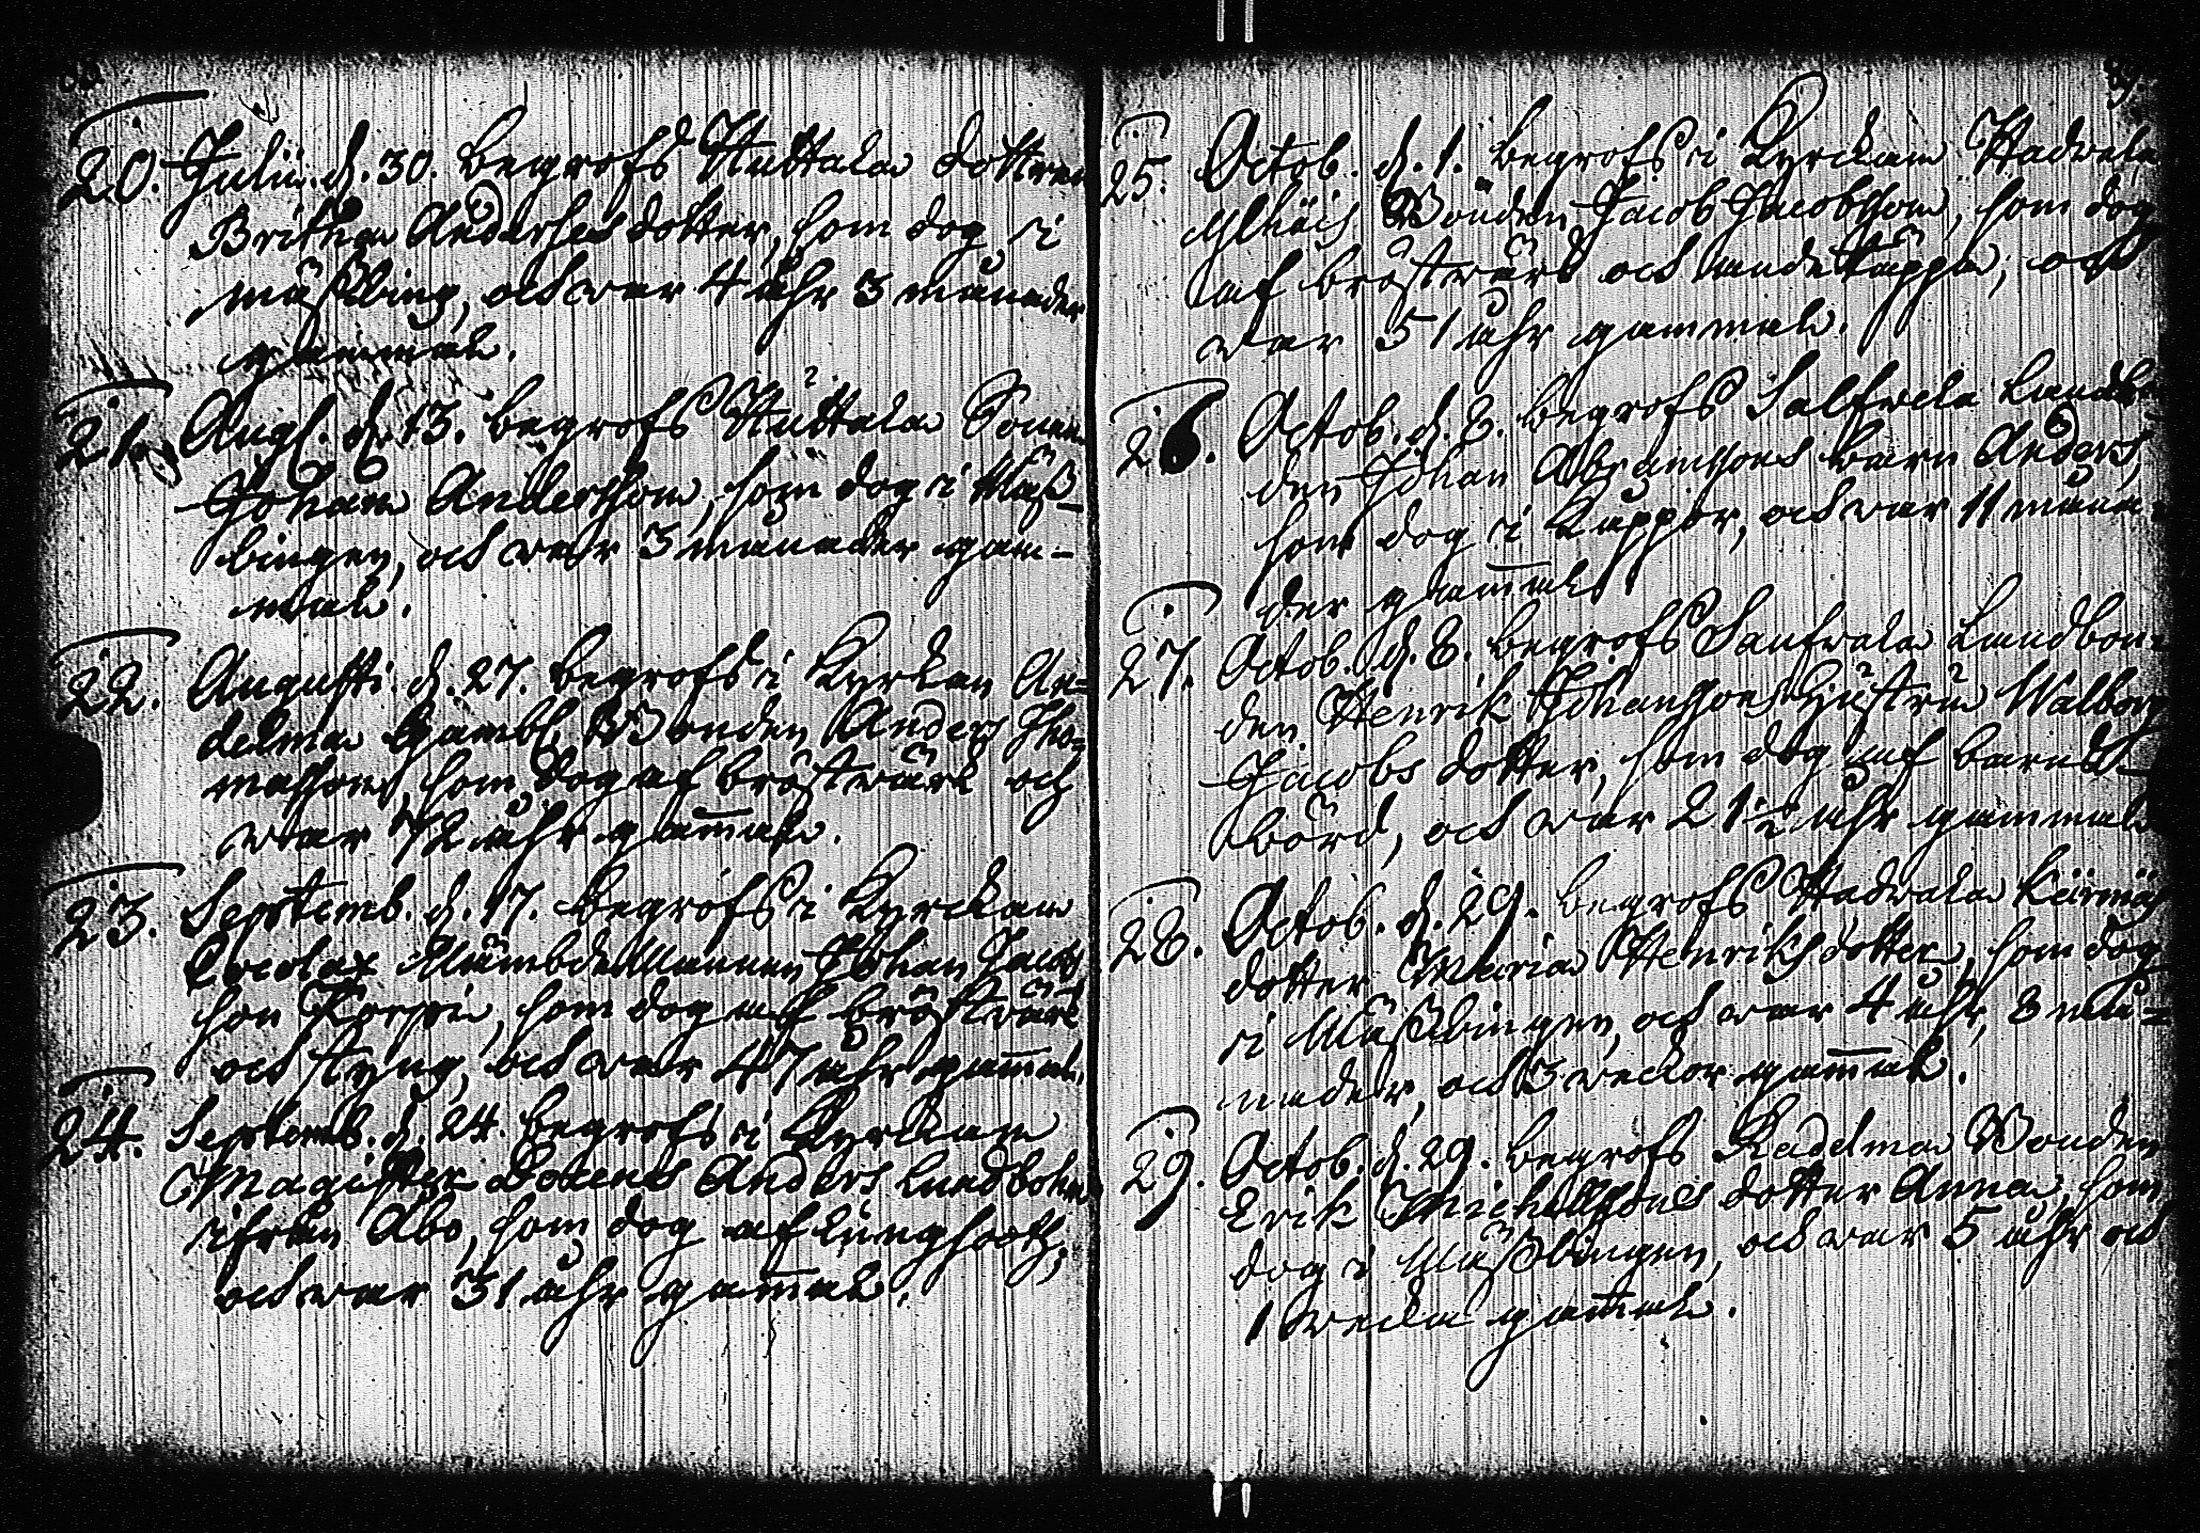 20. Julii. d. 30. begrofs Huttala dottren
Britha Anders dotter, som dog i
mäßling, och war 4 åhr 3 månader
gammal.
21. Aug. d. 13. begrofs Huttala Sonen
Johan Andersson, som dog i Mäß-
lingen, och war 3 månader gam-
mal.
22. Augusti d. 27. begrofs i Kyrkan An-
delma Gambl. Bonden Anders Tho-
massons, som dog af bröstwärk och
war 72 åhr gam̄al.
23. Septemb. d. 17. begrofs i Kyrckan
Nämbdemannen Johan Jacobs
son Korpi, som dog af bröstwärk
och styng, och war 47 åhr gam̄al.
24. Septemb. d. 24. begrofs i Kyrckan
Magister Docens Anders Lundbohm
ifrån Åbo, som dog af lungsoth,
och war 31 åhr gam̄al.
25. Octob. d. 1. begrofs i Kyrckan Hadwala
Bonden Jacob Jacobsson, som dog
af bröstwärk och och
war 51 åhr gammal.
26. Octob. d. 8. begrofs Salfwela Landbon-
den Johan Abramssons barn Anders,
som dog i Kåppor, och war 11 måna-
der gam̄al.
27. Octob. d. 8. begrofs Landbon-
den Henrik Johanssons Hustru Walborg
Jacobs dotter, som dog af barns-
börd, och war 21½ åhr gammal
28. Octob. d. 29. begrofs Hadwala
dotter Maria Henriks dotter, som dog
i Mäßlingen, och war 4 åhr, 8 må-
nader, och 3 weckor gam̄al.
29. Octob. d. 29. begrofs Kadelma Bonden
Erik Michelssons dotter Anna, som
dog i Mäßlingen, och war 5 åhr och
1 wecka gam̄al.